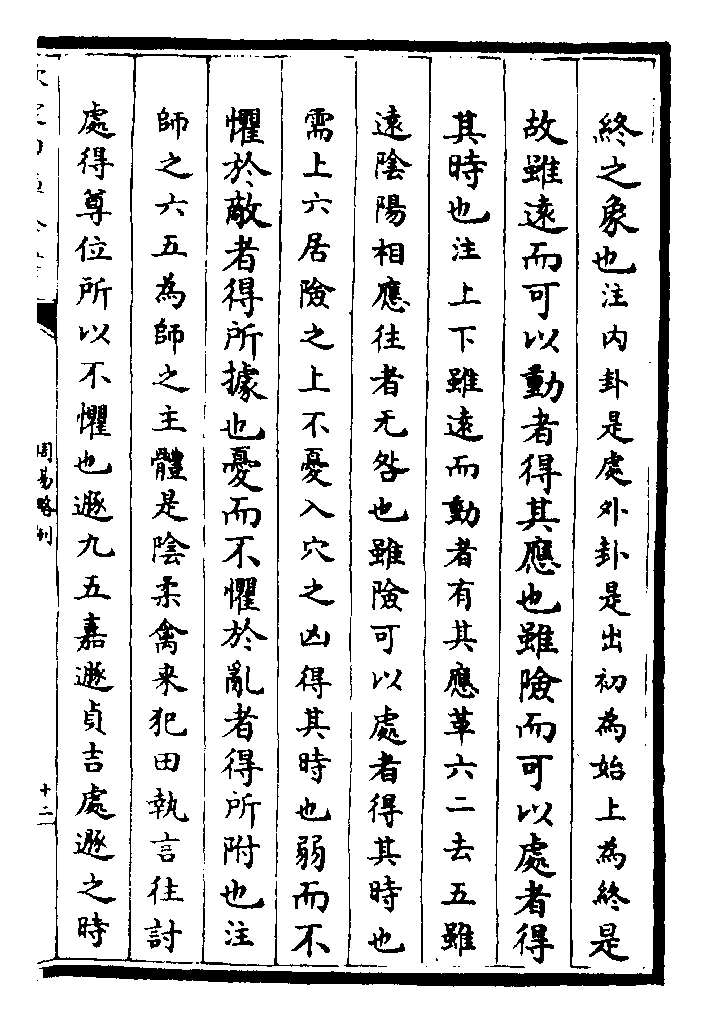 終之象也注内卦是處外卦是出初為始上為終是
故雖逺而可以動者得其應也雖險而可以處者得
其時也注上下雖逺而動者有其應革六二去五雖
逺陰陽相應往者无咎也雖險可以處者得其時也
需上六居險之上不憂入穴之凶得其時也弱而不
懼於敵者得所據也憂而不懼於亂者得所附也注
師之六五為師之主體是陰柔禽来犯田執言往討
處得尊位所以不懼也遯九五嘉遯貞吉處遯之時
周易略例
十二